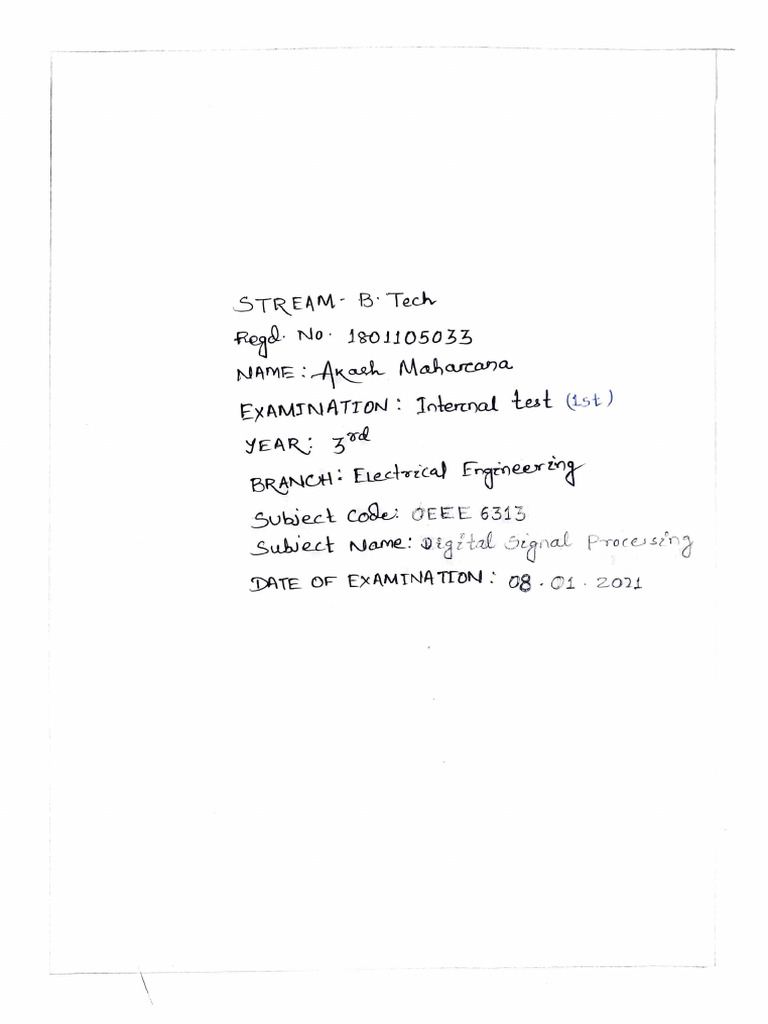 STREAM - B. Tech
Regd. No. 1801105033
NAME: Akash Maharana
EXAMINATION: Internal test (1st)
YEAR: 3rd
BRANCH: Electrical Engineering
Subject Code: OEEE 6313
Subject Name: Digital Signal Processing
DATE OF EXAMINATION: 08.01.2021